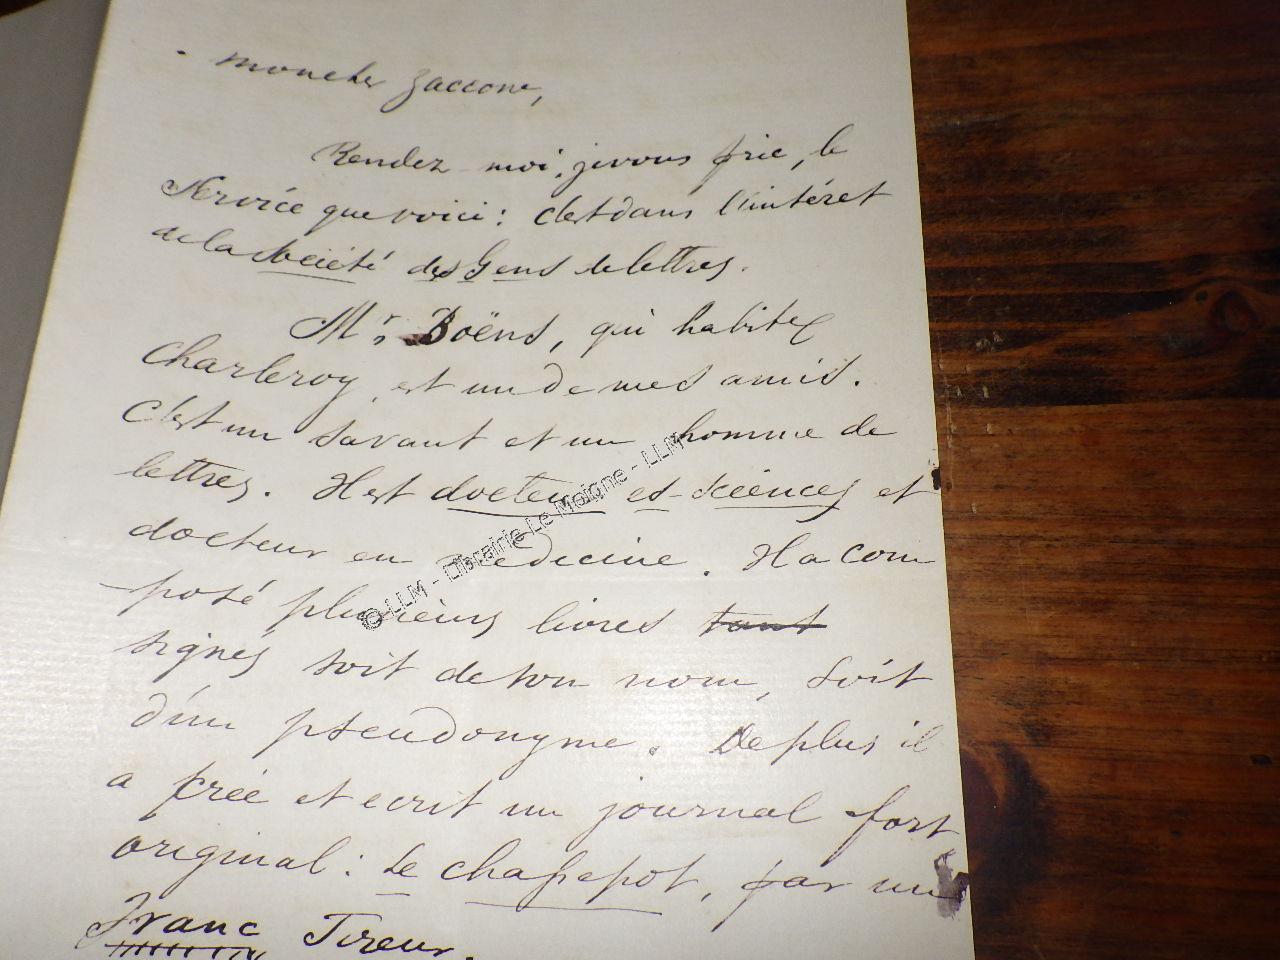 mon cher Zaccone,
Rendez-moi, je vous prie, le
service que voici : c'est dans l'intéret
de la Société des Gens de lettres.
Mr Boëns, qui habite
Charleroy, est un de mes amis.
C'est un savant et un homme de
lettres. Il est docteur es-sciences et
docteur en médecine. Il a com
posé plusieurs livres tant
signés soit de son nom, soit
d'un pseudonyme. De plus il
a créé et ecrit un journal fort
original : Le chassepot, par un
Franc Tireur.
© LLM - Librairie Le Moigne - LLM